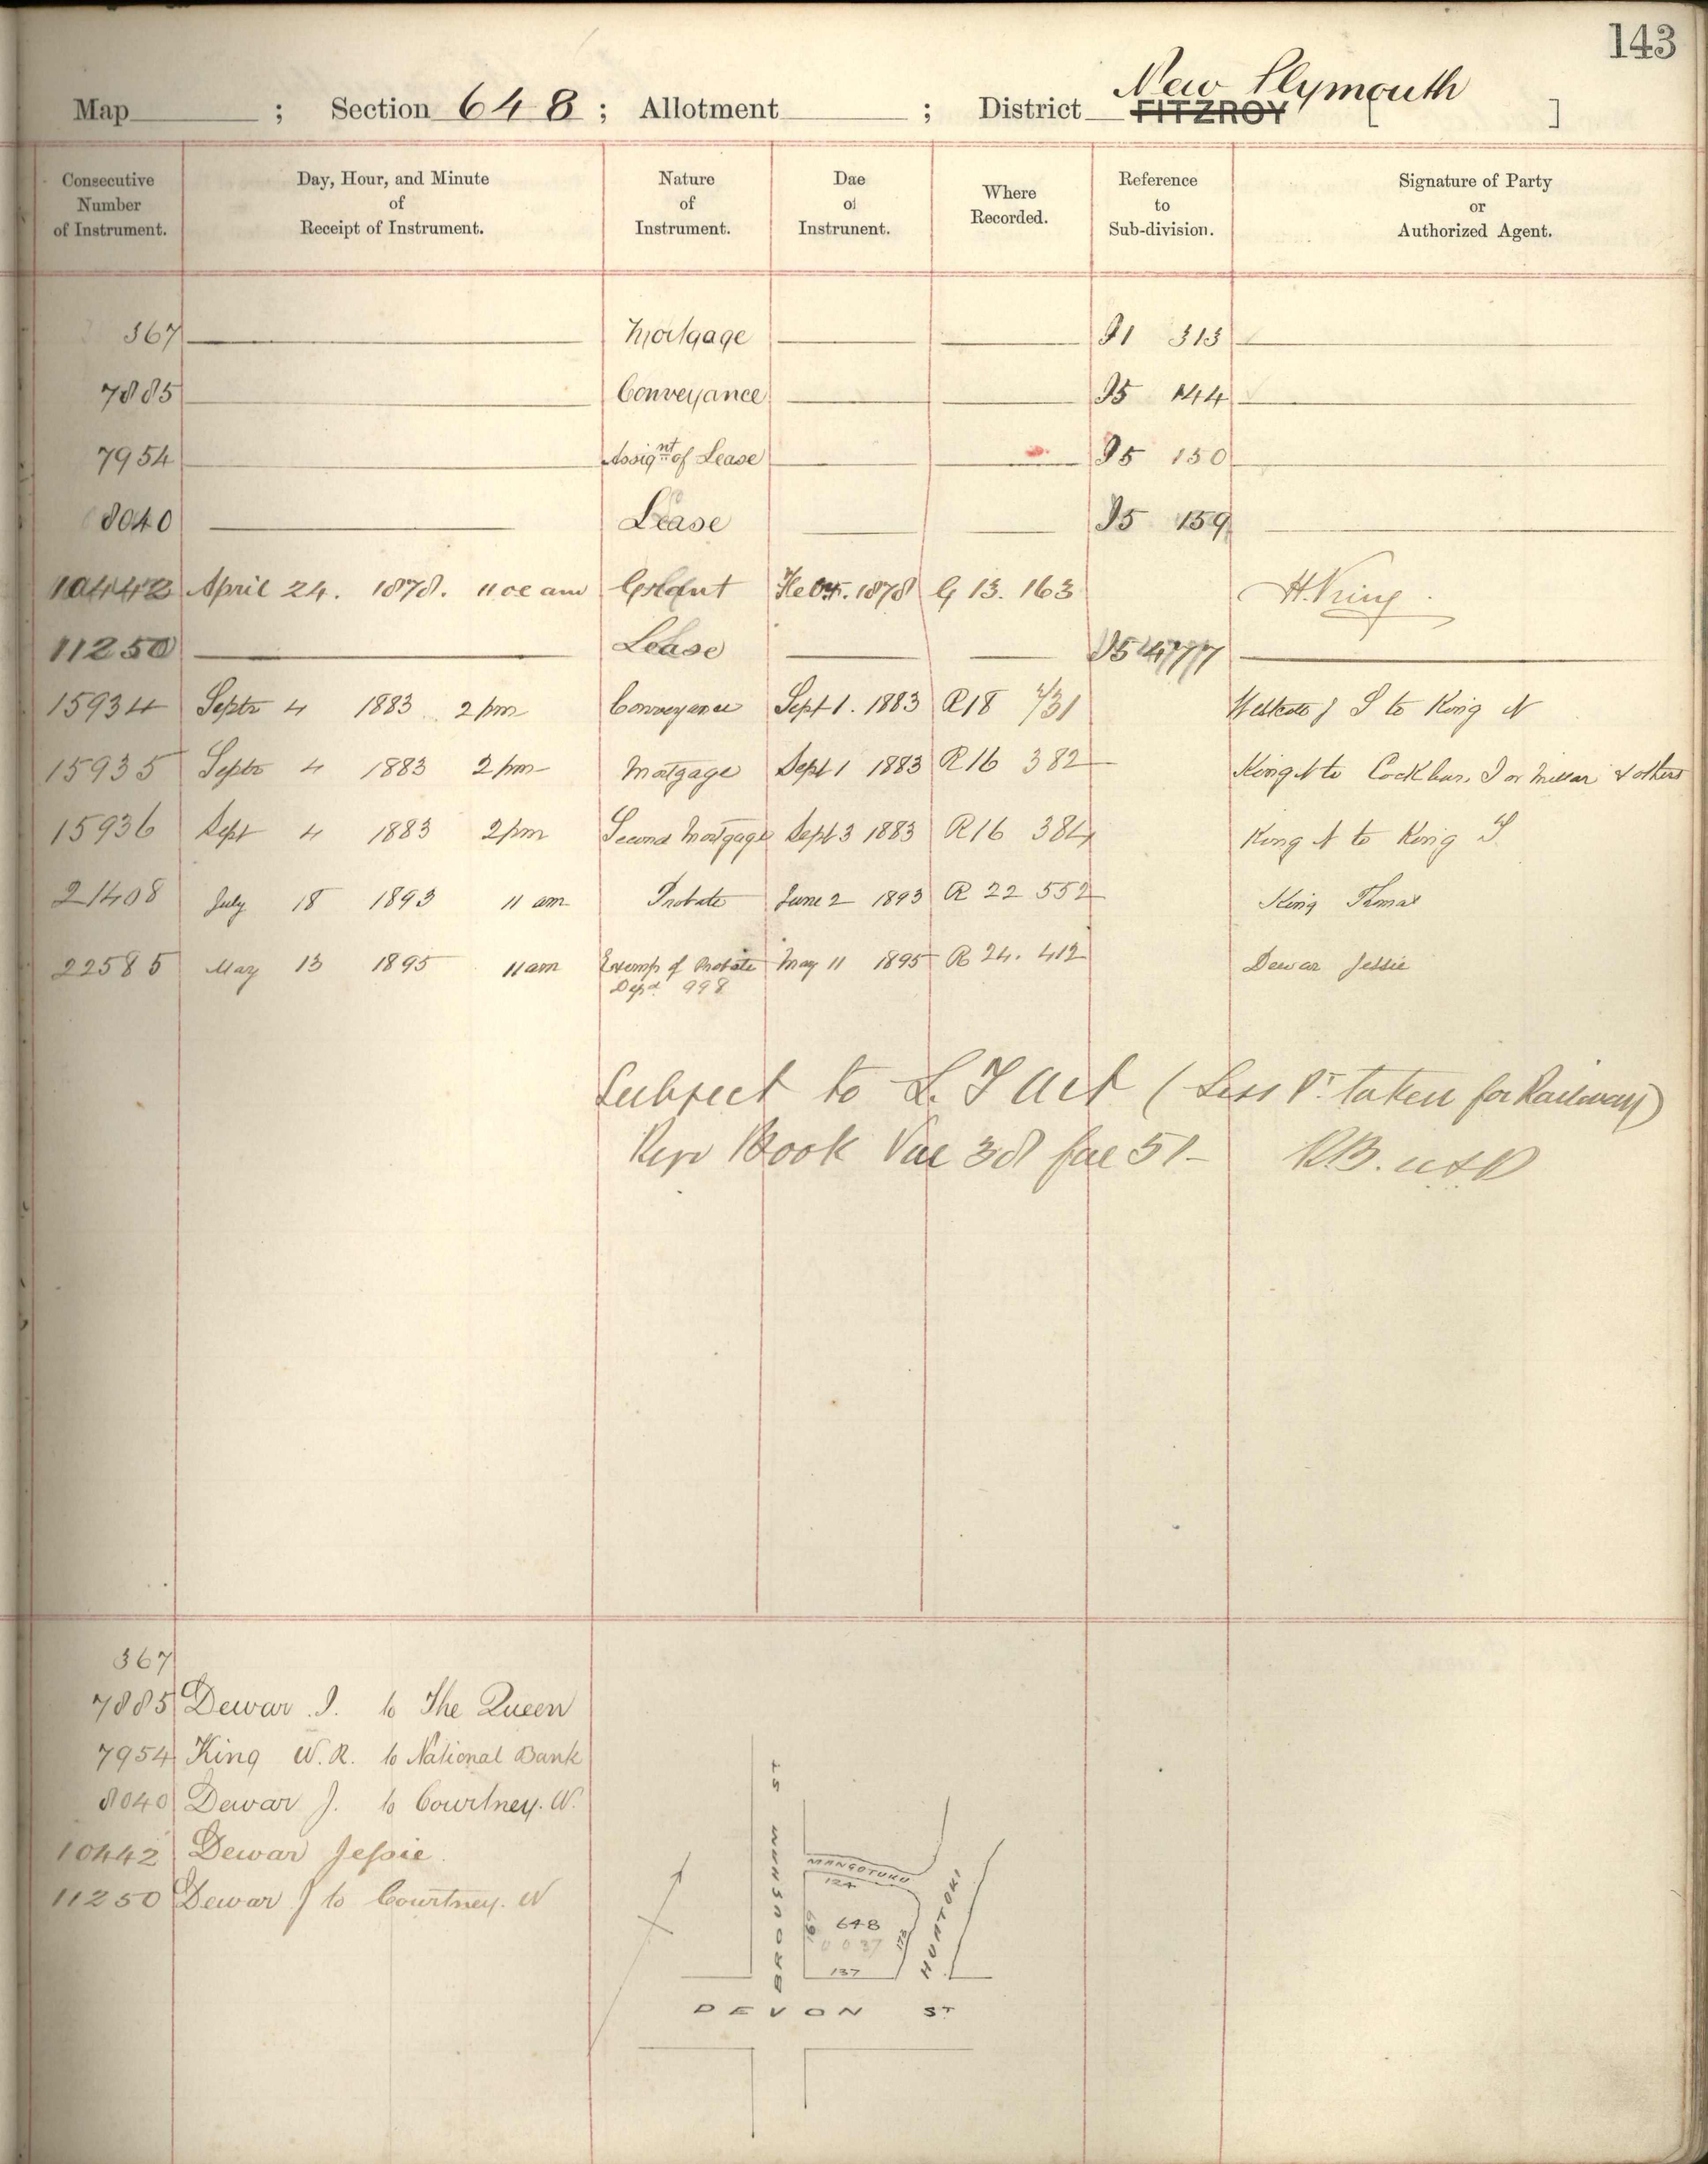 143
New Plymouth
Map ; Section 648 ; Allotment ; District FITZROY ]
Consecutive Number of Instrument.
Day, Hour, and Minute of Receipt of Instrument.
Nature of Instrument.
Dae of Instrunent.
Where Recorded.
Reference to Sub-division.
Signature of Party or Authorized Agent.
367 Mortgage 313
7885 Conveyance 144
7954 Assignt of Lease 150
8040 Lease 159
10442 April 24. 1878. 11 am 1878 G 13. 163 H. King.
11250 Lease
15934 Septr 4 1883 2 pm Conveyance Sept 1. 1883 R18 731 to King N
15935 Septr 4 1883 2 pm Mortgage Sept 1 1883 R16 382 King N to & others
15936 Sept 4 1883 2 pm Second Mortgage Sept 3 1883 R16 384 King N to King T
21408 July 18 1893 11 am Probate June 2 1893 R 22 552 King Thomas
22585 May 13 1895 11 am Exemp of Probate May 11 1895 R 24. 412 Dewar Jessie
Depd 998
Subject to L.T Act (Less Pt taken for Railway)
Book 38 51
367
7885 Dewar J. to The Queen
7954 King W. R. to National Bank
8040 Dewar J. to Courtney. W.
10442 Dewar Jessie
11250 Dewar J to Courtney. W
BROUGHAM ST
MANGOTUKU
124
HUATOKI
169
648
0 0 37
173
137
DEVON ST